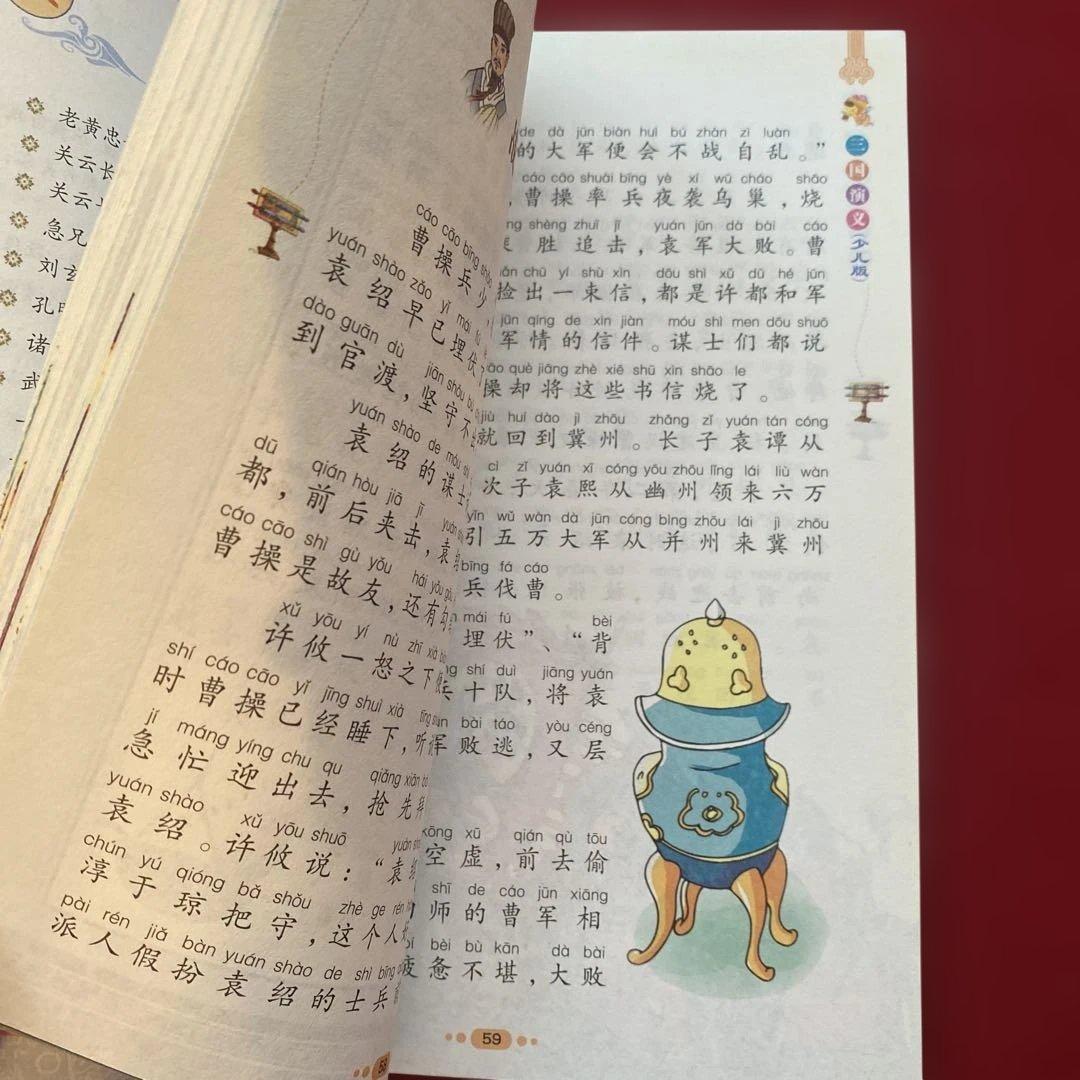 老黄忠
关云长
关云
急兄
刘玄
孔明
诸
武
cáo cāo bīng shǎo
曹操兵少,
yuán shào zǎo yǐ mái fú
袁绍早已埋伏了
dào guān dù jiān shǒu bù
到官渡,坚守不出
yuán shào de móu shì
袁绍的谋士
dū qián hòu jiā jī yuán
都,前后夹击,袁
cáo cāo shì gù yǒu hái yǒu gōu
曹操是故友,还有勾
xǔ yōu yí nù zhī xià
许攸一怒之下便
shí cáo cāo yǐ jīng shuì xià tīng
时曹操已经睡下,听
jí máng yíng chu qu qiǎng xiān bài
急忙迎出去,抢先拜
yuán shào xǔ yōu shuō yuán shào
袁绍。许攸说:“袁绍
chún yú qióng bǎ shǒu zhè ge rén
淳于琼把守,这个人
pài rén jiǎ bàn yuán shào de shì bīng
派人假扮袁绍的士兵
58
de dà jūn biàn huì bú zhàn zì luàn
的大军便会不战自乱。”
cáo cāo shuài bīng yè xí wū cháo shāo
,曹操率兵夜袭乌巢,烧
shèng zhuī jī yuán jūn dà bài cáo
乘胜追击,袁军大败。曹
chū yí shù xìn dōu shì xǔ dū hé jūn
捡出一束信,都是许都和军
jūn qíng de xìn jiàn móu shì men dōu shuō
军情的信件。谋士们都说
què jiāng zhè xiē shū xìn shāo le
操却将这些书信烧了。
jiù huí dào jì zhōu zhǎng zǐ yuán tán cóng
就回到冀州。长子袁谭从
cì zǐ yuán xī cóng yōu zhōu lǐng lái liù wàn
次子袁熙从幽州领来六万
yǐn wǔ wàn dà jūn cóng bìng zhōu lái jì zhōu
引五万大军从并州来冀州
bīng fá cáo
兵伐曹。
mái fú bèi
埋伏”、“背
shí duì jiāng yuán
兵十队,将袁
bài táo yòu céng
败逃,又层
kōng xū qián qù tōu
空虚,前去偷
shī de cáo jūn xiāng
师的曹军相
bèi bù kān dà bài
疲惫不堪,大败
59
三国演义(少儿版)